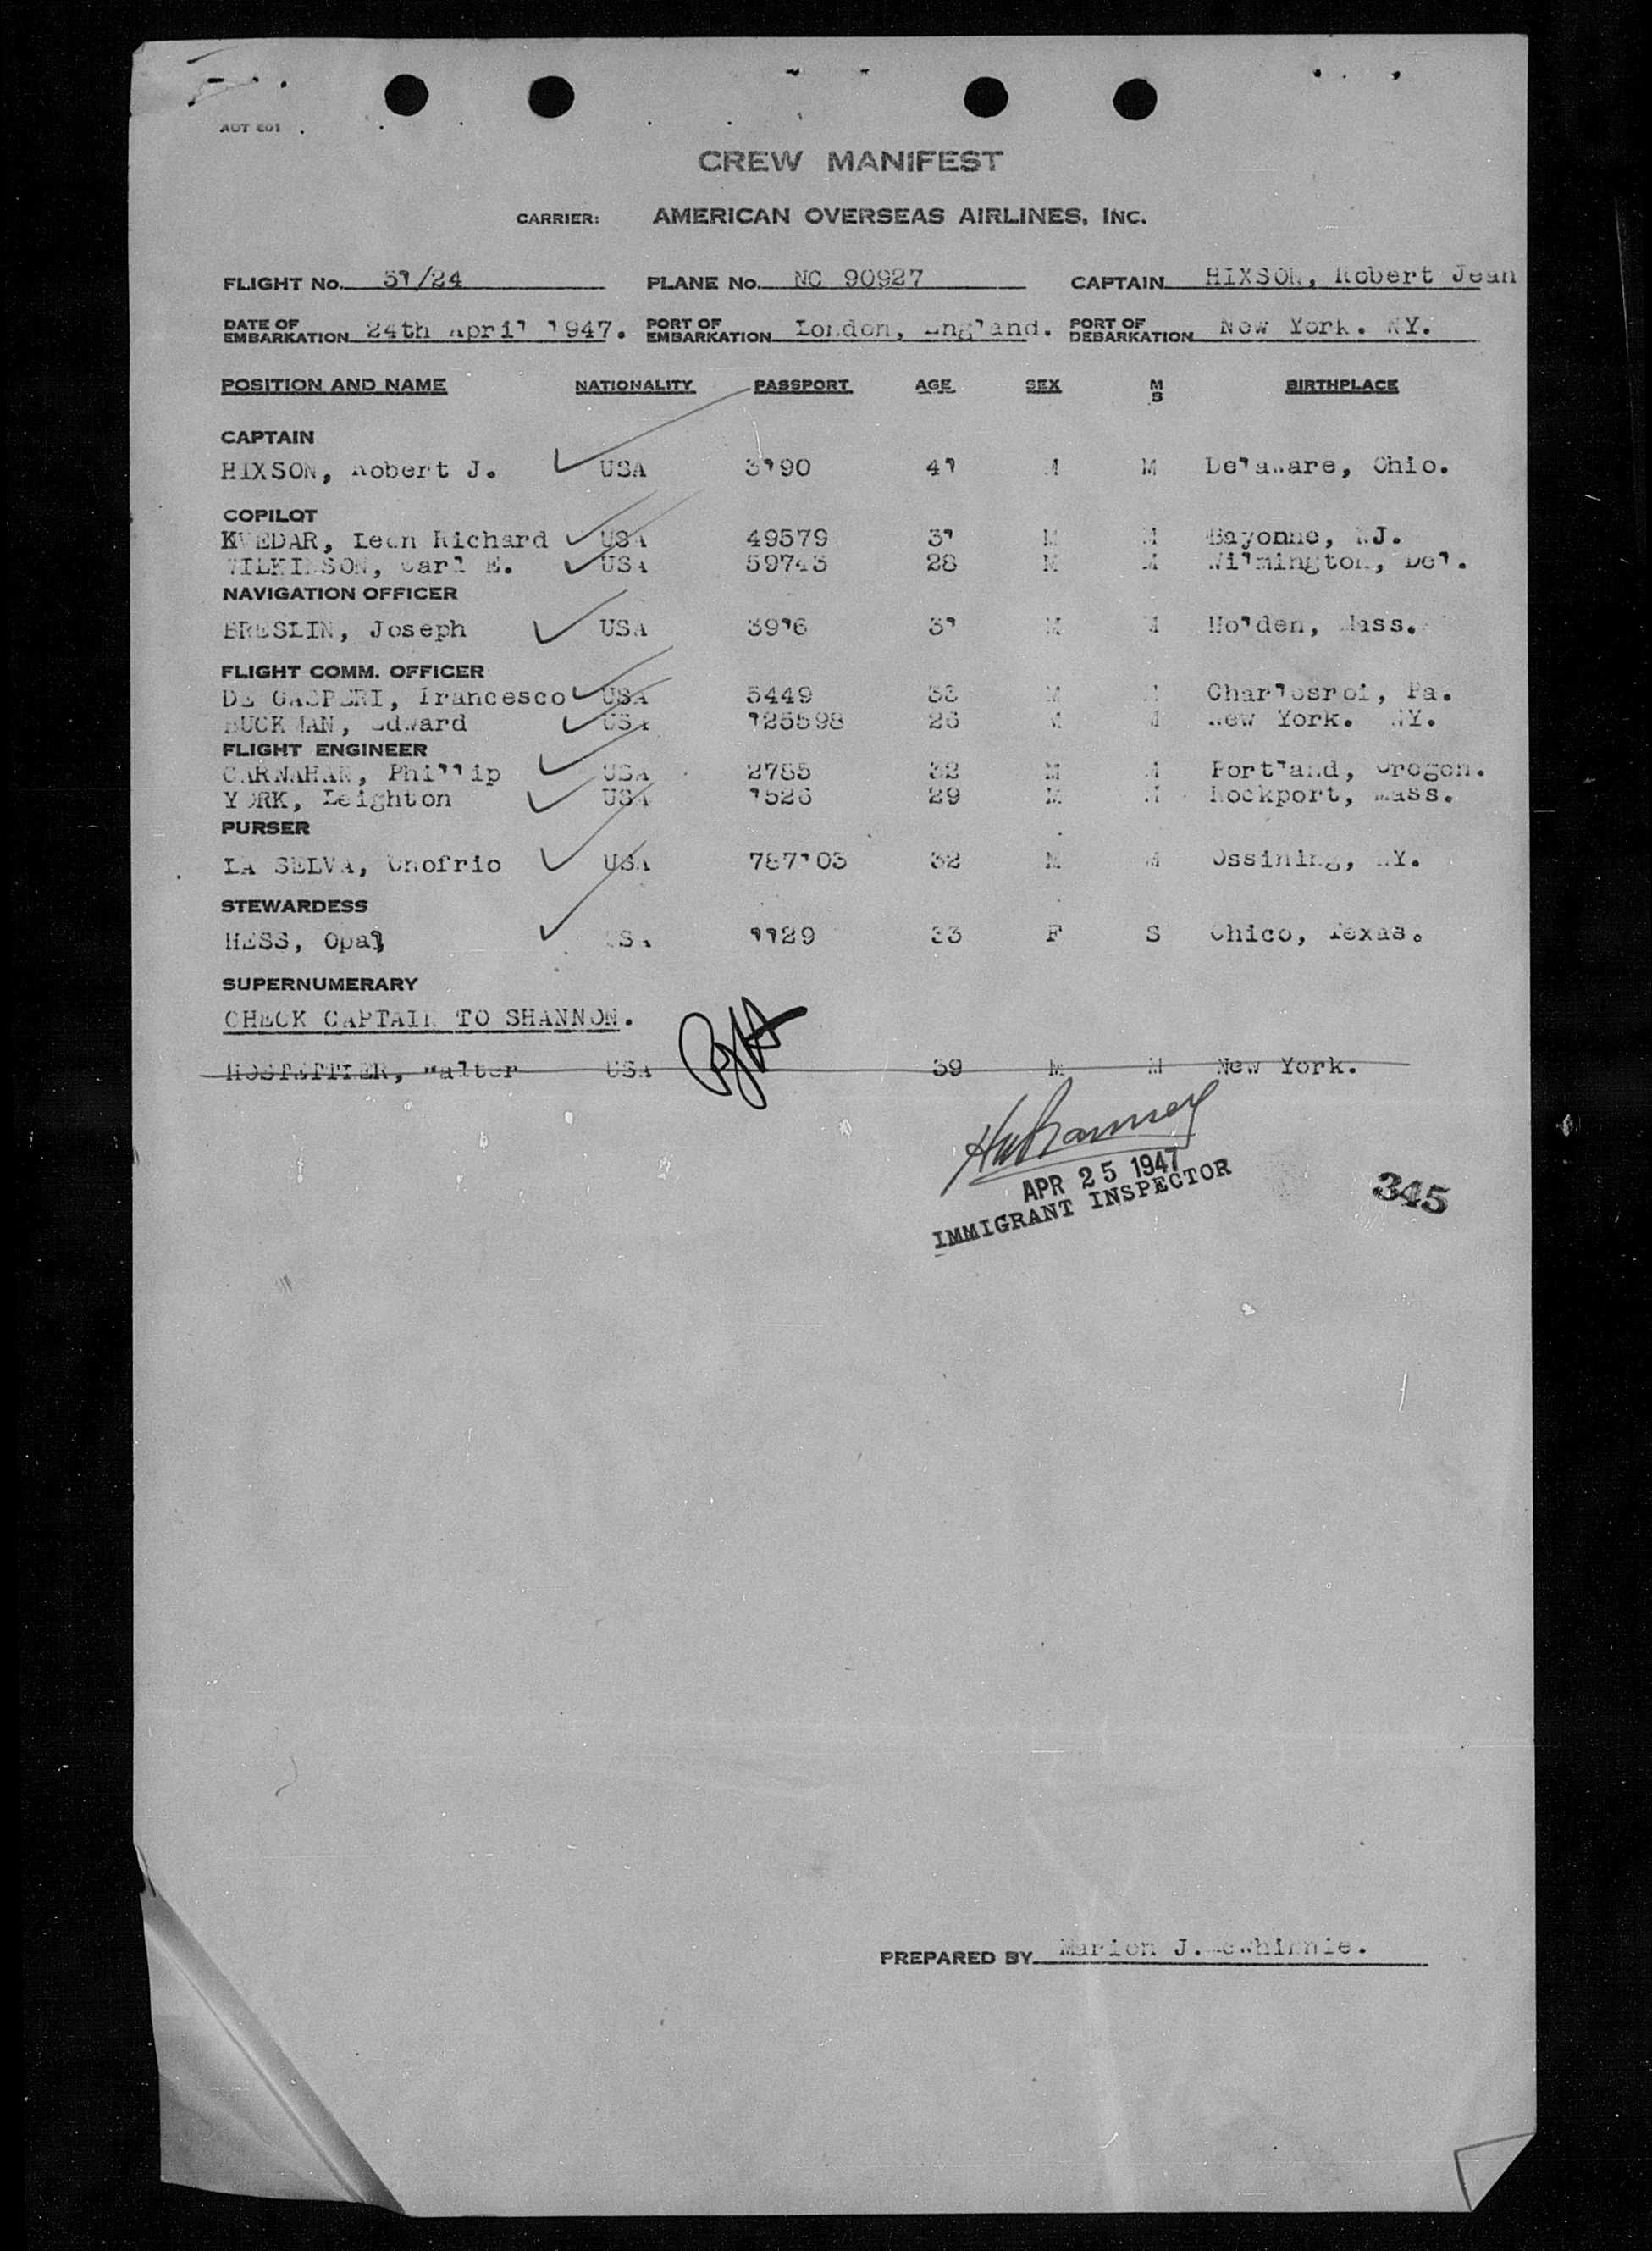 AOT 601
CREW MANIFEST
CARRIER: AMERICAN OVERSEAS AIRLINES, INC.
FLIGHT NO. 51/24 PLANE NO. NC 90927 CAPTAIN HIXSON, Robert Jean
DATE OF EMBARKATION 24th April 1947. PORT OF EMBARKATION London, England. PORT OF DEBARKATION New York. NY.
POSITION AND NAME NATIONALITY PASSPORT AGE SEX M S BIRTHPLACE
CAPTAIN
HIXSON, Robert J. USA 3190 41 M M Delaware, Ohio.
COPILOT
KVEDAR, Leon Richard USA 49579 31 M M Bayonne, NJ.
WILKINSON, Carl E. USA 59743 28 M M Wilmington, Del.
NAVIGATION OFFICER
BRESLIN, Joseph USA 3916 31 M M Holden, Mass.
FLIGHT COMM. OFFICER
DE GASPERI, Francesco USA 5449 33 M M Charlesroi, Pa.
BUCKMAN, Edward USA 125598 26 M M New York. NY.
FLIGHT ENGINEER
CARNAHAN, Phillip USA 2785 32 M M Portland, Oregon.
YORK, Leighton USA 1526 29 M M Rockport, Mass.
PURSER
LA SELVA, Onofrio USA 787103 32 M M Ossining, NY.
STEWARDESS
HESS, Opal USA 1129 33 F S Chico, Texas.
SUPERNUMERARY
CHECK CAPTAIN TO SHANNON.
HOSTETTLER, Walter USA 39 M M New York.
APR 25 1947
IMMIGRANT INSPECTOR
345
PREPARED BY Marion J. McWhinnie.